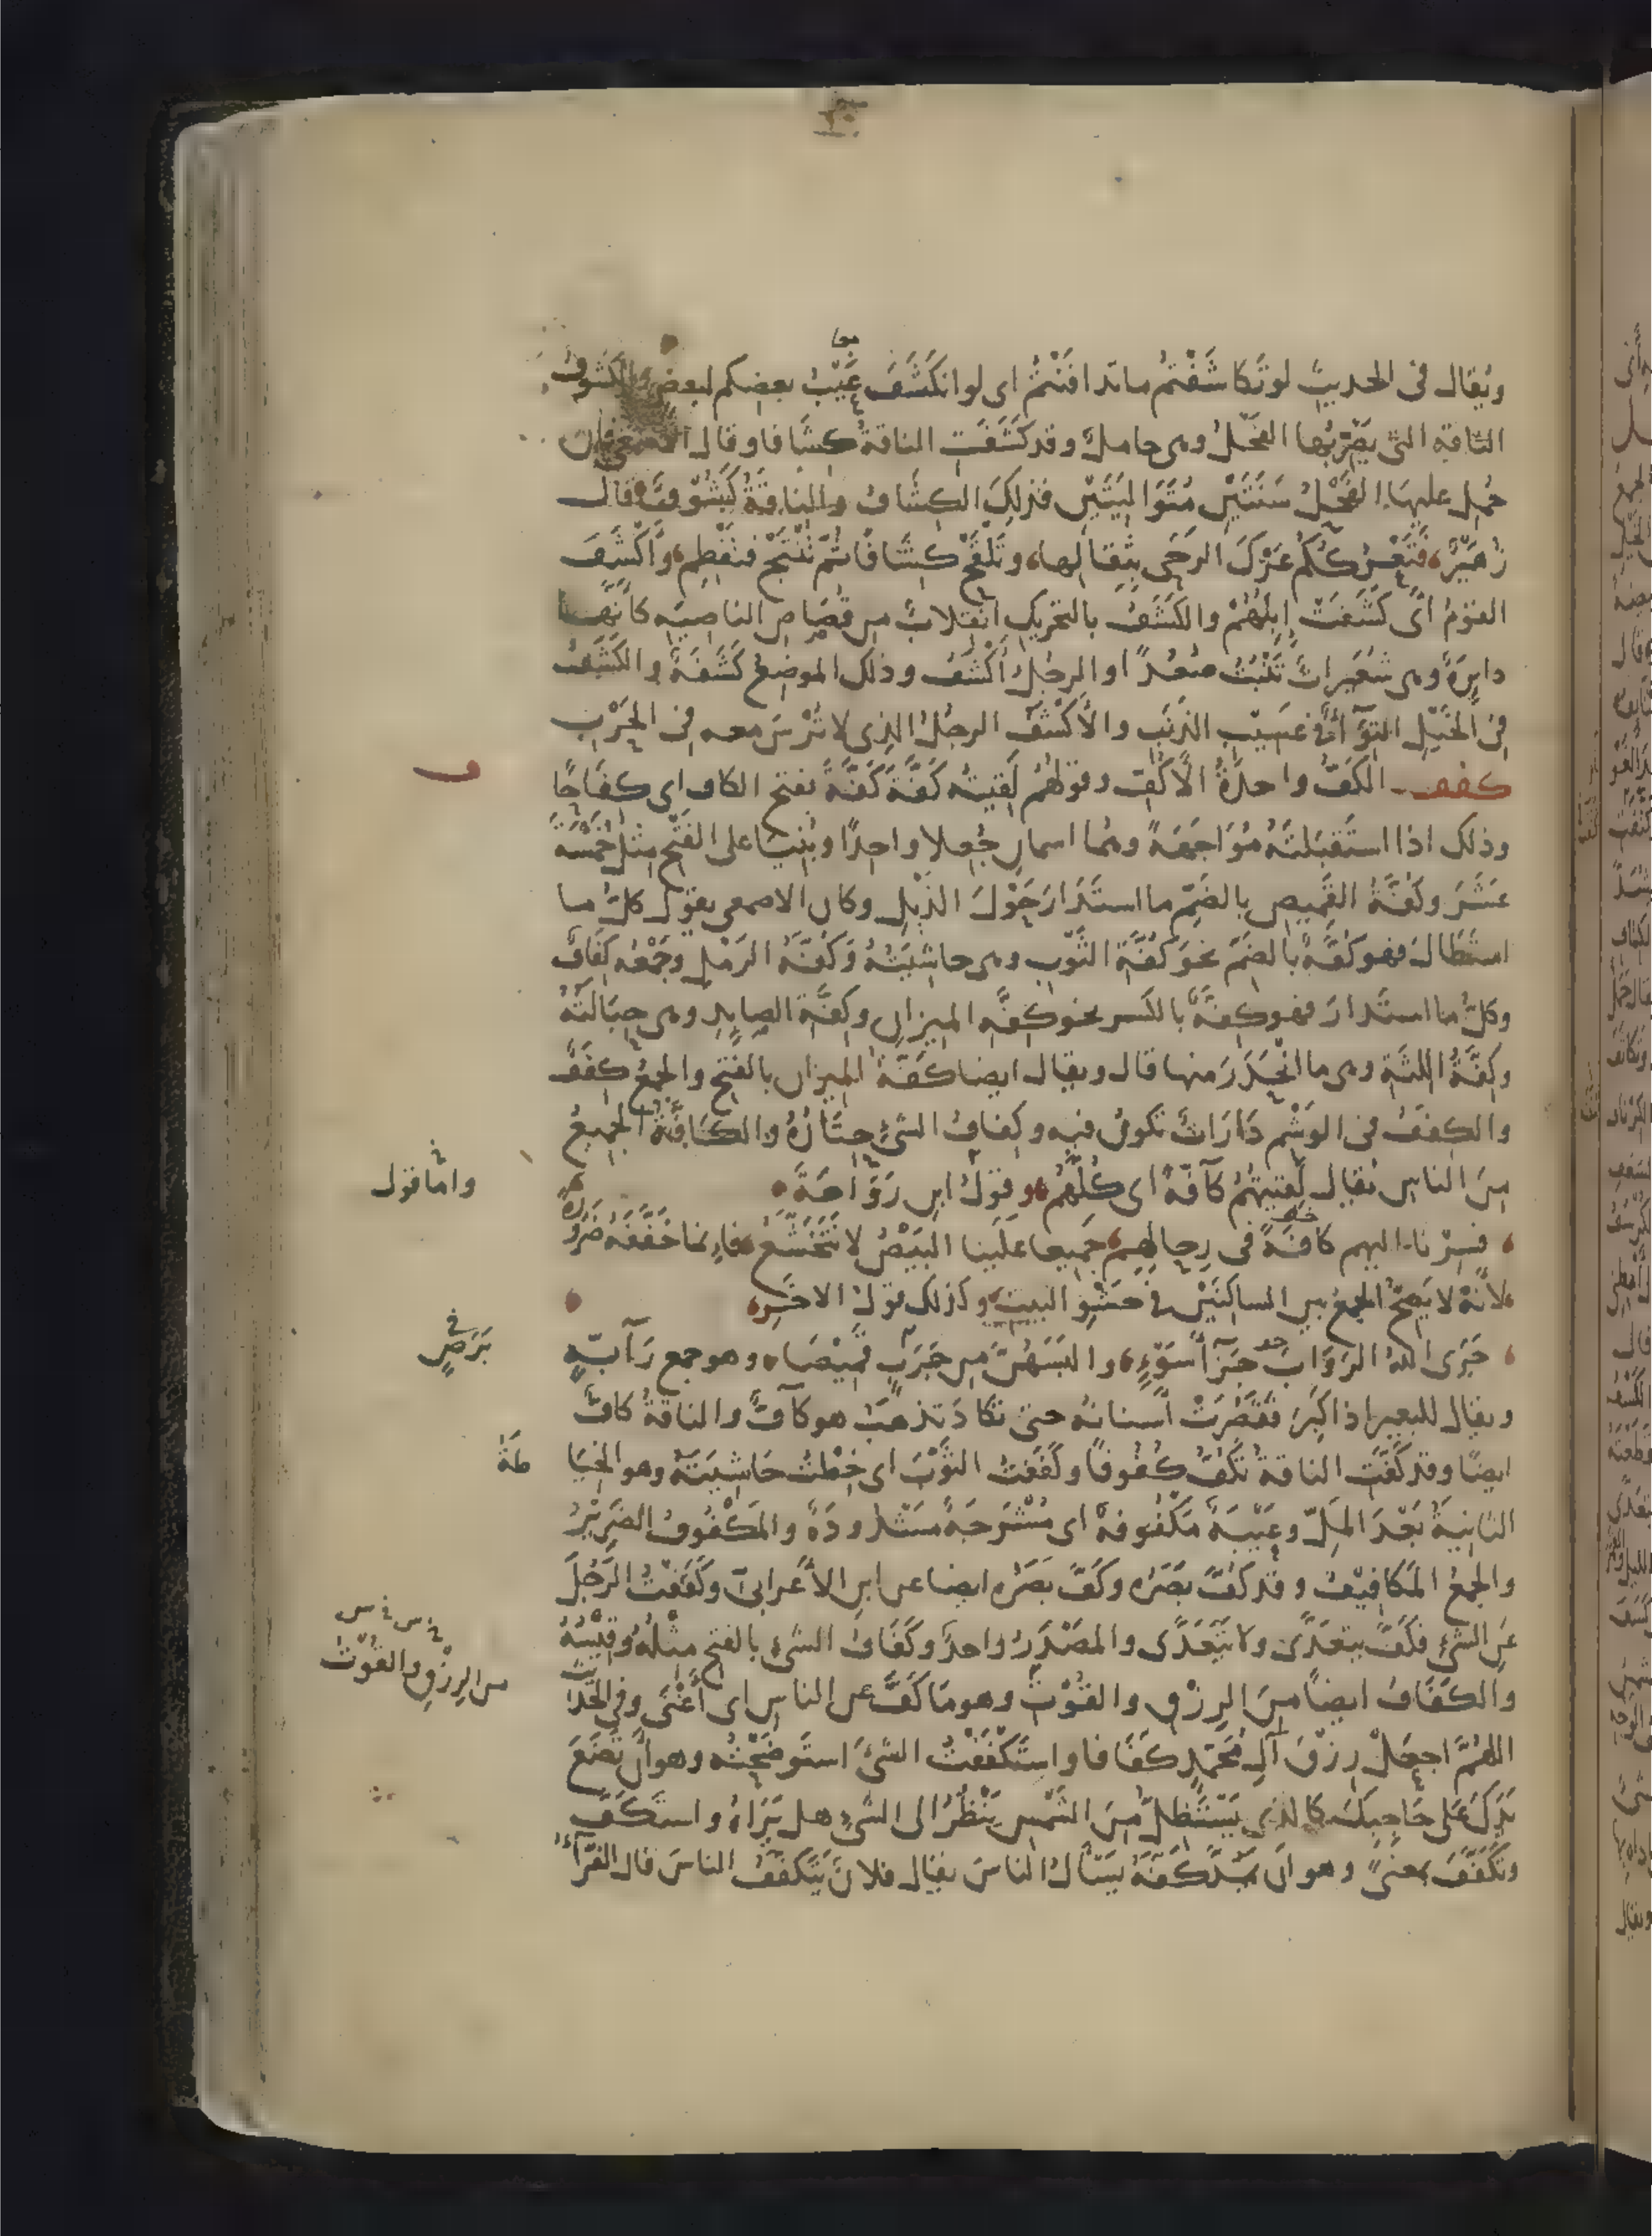 ويقال فى الحديث لو تكاشَفْتُم ما تدافَنْتُمْ اى لو انكَشَفَ عَيْبُ بعضكم لبعض والكَشُوفُ
الناقة التى يَضْرِبُها الفَحْلُ وهى حاملٌ وقد كَشَفَتِ الناقةُ كِشَافا وقال الاصمعىّ ان
حُمِل عليها الفَحْلُ سَنَتَيْنِ مُتَوَالِيَتَيْنِ فذلكَ الكِشَافُ والناقةُ كَشُوفٌ قال
زُهَيْرٌ، فتَعْرُكْكُمْ عَرْكَ الرَحَى بِثِفالِها، وتَلْقَحْ كِشَافًا ثُمَّ تُنْتَجْ فتَفْطِمِ، وأَكْشَفَ
القوْمُ أى كَشَفَتْ إِبِلُهُمْ والكَشَفُ بالتحريك انقِلابٌ من قُصَاصِ الناصيه كأنَّها
دايرَةٌ وهى شُعَيراتٌ تَنْبُتُ صُعُدًا والرجُلُ أَكْشَفُ وذلك الموضِعُ كَشَفَةٌ والكَشَفُ
فى الخَيْلِ التِوَآءٌ فى عَسِيْبِ الذَنَبِ والأَكْشَفُ الرجُلُ الذى لا تُرْسَ معه فى الحَرْبِ
كفف الكَفُّ واحدَةُ الأَكُفِّ وقولهُم لَقِيتُه كَفَّةَ كَفَّةَ بفتح الكاف اى كِفَاحًا
ف
وذلك اذا استَقبَلتَهُ مُوَاجَهَةً وهُما اسمانِ جُعِلا واحِدًا وبُنِيَا على الفَتْحِ مثل خَمْسَةَ
عَشَرَ وكُفَّةُ القَمِيصِ بالضَمّ ما استَدَارَ حَوْلَ الذَيْلِ وكان الاصمعى يقول كلُّ ما
استَطَالَ فهو كُفَّةٌ بالضَمّ نحوَ كُفَّةِ الثَوْبِ وهى حاشِيَتُهُ وكُفَّةُ الرَمْلِ وجَمْعُه كِفَافٌ
وكلُّ ما استَدارَ فهو كِفَّةٌ بالكسر نحو كِفّةِ الميزانِ وكِفَّةِ الصايِدِ وهى حِبَالَتُهُ
وكِفَّةُ اللثَةِ وهى ما انْحَدَرَ منها قال ويقال ايضا كَفَّةُ الميزان بالفَتْحِ والجمعُ كِفَفٌ
والكِفَفُ فى الوَشْمِ دَارَاتٌ تكونُ فيه وكِفافُ الشىءِ حِتَارُهُ والكَافَّةُ الجَمِيعُ
مِنَ الناسِ يُقال لَقِيتُهُمْ كآفّةً اى كُلَّهُمْ وقولُ ابنِ رَوَاحَةَ
واما قول
فسِرْنا اليهم كافَةً فى رِحالِهِم جَمِيعا عَلَينا البَيْضُ لا نَتَخَشَّعُ فإنما خَفَّفَهُ ضَرُورَةً
لأنَّهُ لا يَصِحُّ الجَمْعُ بين الساكنَيْنِ فى حَشْوِ البيت وكذلك قولُ الآخَرِ
جَزَى اللهُ الرَوَابَ جَزآءَ سَوْءٍ، والبَسَهُنَّ مِن جَرَبٍ قَمِيْصَا، وهو جمع رَآبّةٍ
بَرَصٍ
ويقال للبعير اذا كَبِرَ فقَصُرَتْ أسنانُهُ حتى تكادَ تذهبُ هو كآفٌّ والناقةُ كافٌّ
ايضًا وقد كَفَّتِ الناقةُ تكُفُّ كُفُوفًا وكَفَفْتُ الثَوْبَ اى خِطْتُ حَاشِيَتَهُ وهو الخِيَا
طَةُ
الثانِيَةُ بَعْدَ المَلِّ وعَيْبَةٌ مَكْفُوفةٌ اى مُشْرَجَةٌ مَشْدُودَةٌ والمَكْفُوفُ الضَرِيْرُ
والجمعُ المَكافِيْفُ وقد كُفَّ بصَرُه وكَفَّ بَصَرُه ايضا عن ابنِ الأَعْرابىّ وكَفَفْتُ الرَجُلَ
عَنِ الشىءِ فكَفَّ يتعَدَّى ولا يَتَعَدَّى والمَصْدَرُ واحدٌ وكَفَافُ الشىءِ بالفتح مثْلُهُ وقَيْسُهُ
والكَفَافُ ايضًا مِنَ الرِزْقِ والقُوْتُ وهو مَا كَفَّ عن الناسِ اى أَغْنَى وفى الحَدِيْثِ
من الرِزْقِ والقُوْتُ
اللهُمَّ اجعَلْ رِزْقَ آلِ مُحَمّدٍ كَفَافا واستَكْفَفْتُ الشىءَ استَوضَحْتُه وهو أَنْ تَضَعَ
يَدَكَ عَلى حَاجِبِكَ كالذى يَسْتَظِلُّ مِنَ الشَمْسِ يَنْظُرُ الى الشىءِ هل يَرَاهُ واستَكَفَّ
وتَكَفَّفَ بمعنىً وهو ان يَمُدَّ كَفَّهُ يَسْأَلُ الناسَ يقال فلانٌ يَتَكفَّفُ الناسَ قال الفَرّآءُ